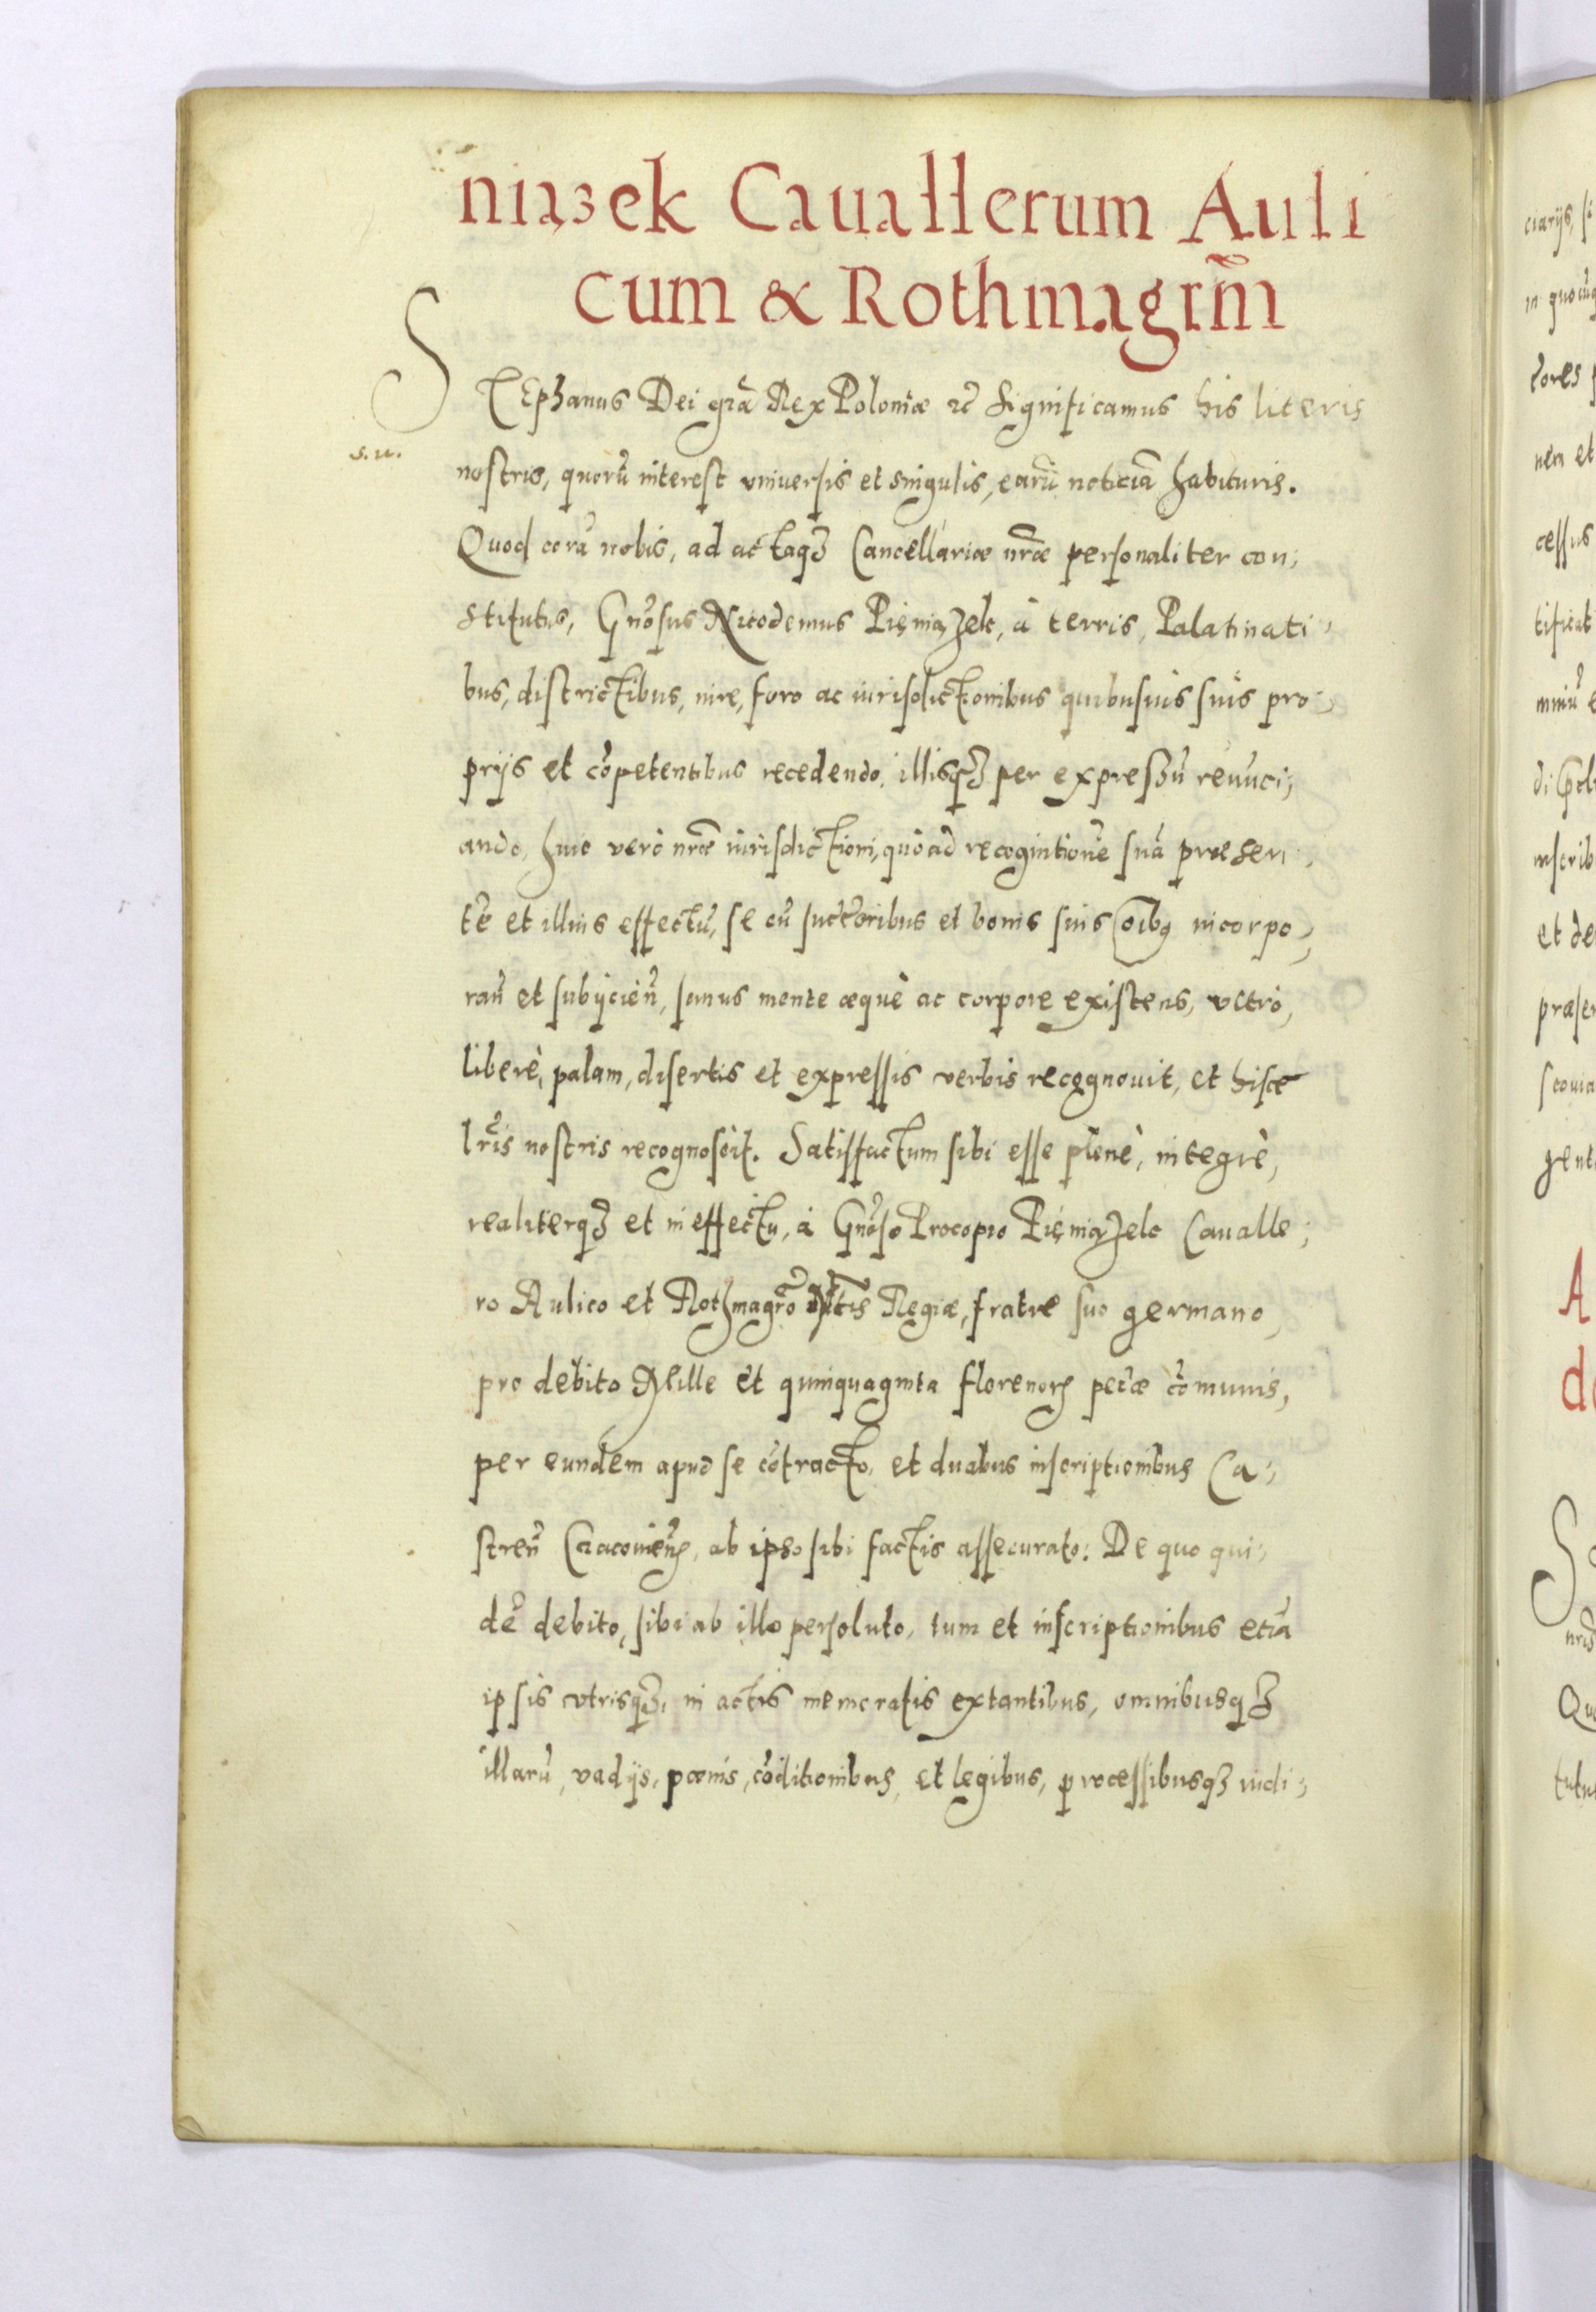 niązek Cauallerum Auli
cum & Rothmagrm̃
STEphanus Dei grã Rex Poloniæ ꝛc Significamus his literis
s. u.
nostris, quorũ interest vniuersis et singulis, earũ noticiã habituris.
Quod corã nobis, ad actaqȝ Cancellariæ nrõæ personaliter con,
stitutus, Gnõsus Nicodemus Pięniązek, à terris, Palatinati,
bus, districtibus, iure, foro ac iurisdictionibus quibusuis suis pro,
prijs et cõpetentibus recedendo, illisqȝ per expressũ renũci,
ando, huic verò nrõæ iurisdictioni, quò ad recognitionẽ suã præsen,
tẽ et illius effectũ, se cũ succẽoribus et bonis suis oĩbꝰ incorpo,
rañ et subijcieñ, sanus mente æquè ac corpore existens, vltrò,
liberè, palam, disertis et expressis verbis recognouit, et hisce
lr̃is nostris recognoscit. Satisfactum sibi esse plenè, integrè,
realiterqȝ et in effectu, à Gnõso Procopio Pięniązek Caualle,
ro Aulico et Rothmagrõ Mtis Regiæ, fratre suo germano,
pro debito Mille et quinquaginta florenorꝝ pecũæ cõmunis,
per eundem apud se cõtracto, et duabus inscriptionibus Ca,
streñ Cracouieñ, ab ipso sibi factis assecurato: De quo qui,
dẽ debito, sibi ab illo persoluto, tum et inscriptionibus etiã
ipsis vtrisqȝ, in actis memoratis extantibus, omnibusqȝ
illarũ, vadijs, pœnis, cõditionibus, et legibus, processibusqȝ iudi,